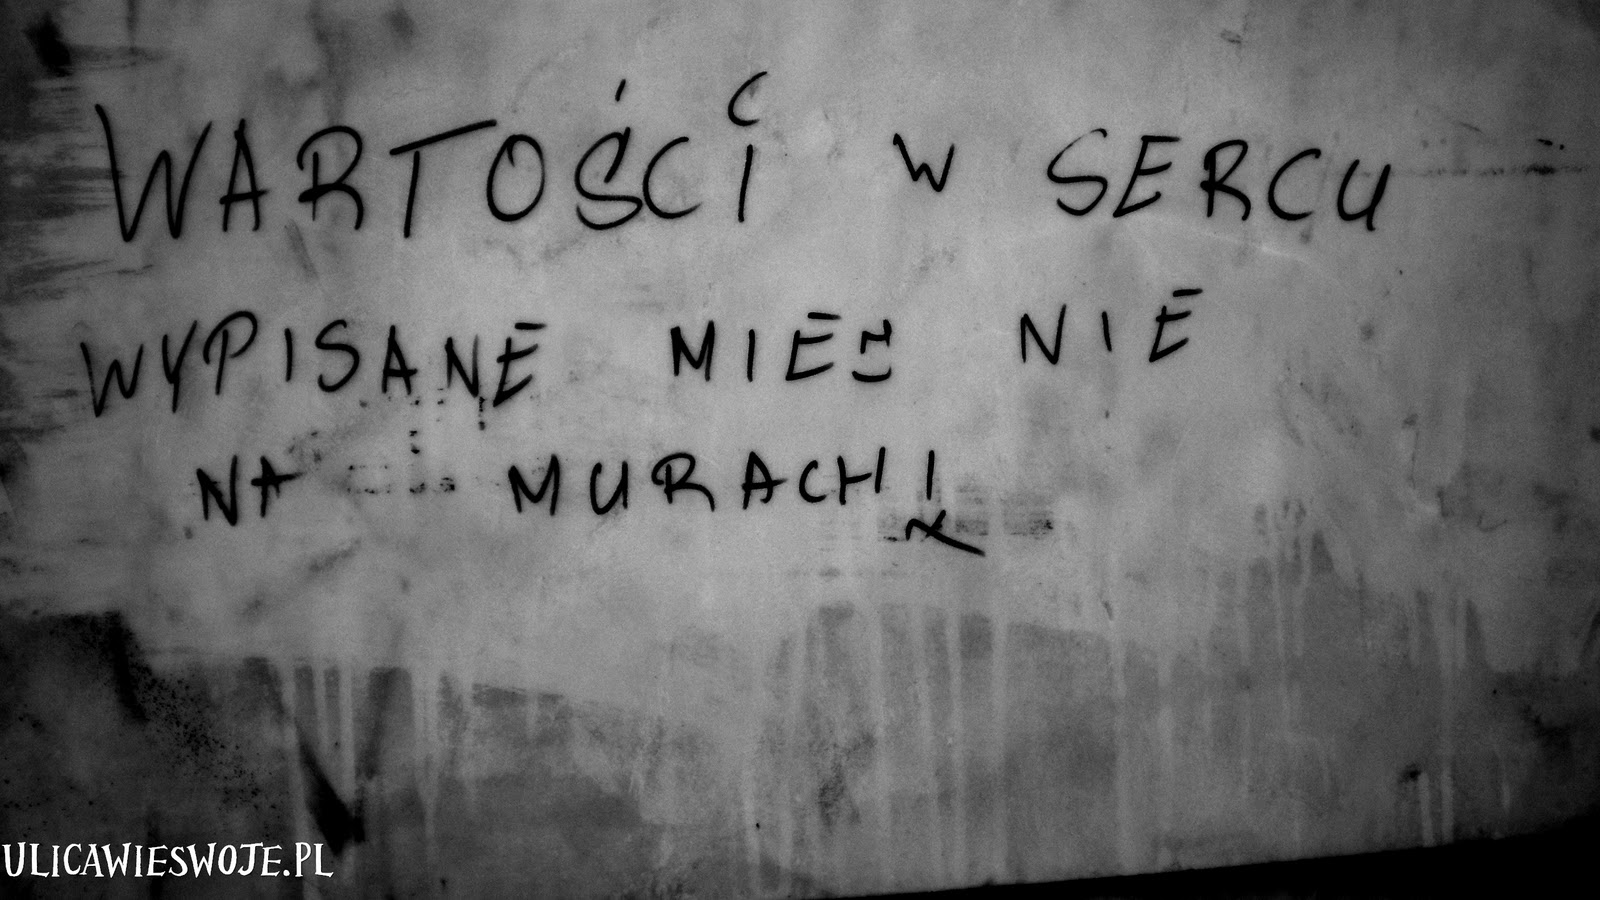 WARTOŚCI W SERCU
WYPISANE MIEJ NIE
NA MURACH!
ULICAWIESWOJE.PL